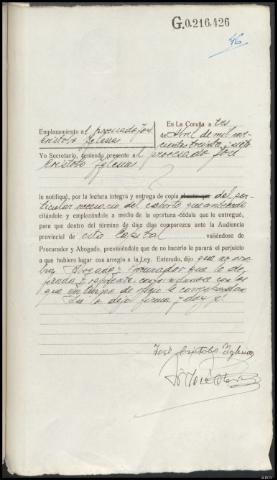 G.0.216.426
46
Emplazamiento al procesado José
Cristobo Yglesias
En La Coruña a tres
de Abril de mil nove-
cientos treinta y siete
Yo Secretario, teniendo presente al procesado José
Cristobo Yglesias
le notifiqué, por la lectura íntegra y entrega de copia del par-
ticular necesario del
citándole y emplazándole a medio de la oportuna cédula que le entregué,
para que dentro del término de diez días comparezca ante la Audiencia
provincial de esta Capital valiéndose de
Procurador y Abogado, previniéndole que de no hacerlo le parará el perjuicio
a que hubiere lugar con arreglo a la Ley. Enterado, dijo que
Abogado y Procurador que le de-
fienda y represente
que en turno de oficio le corresponda
Así lo dijo firma y doy fe
José Cristobo Yglesias